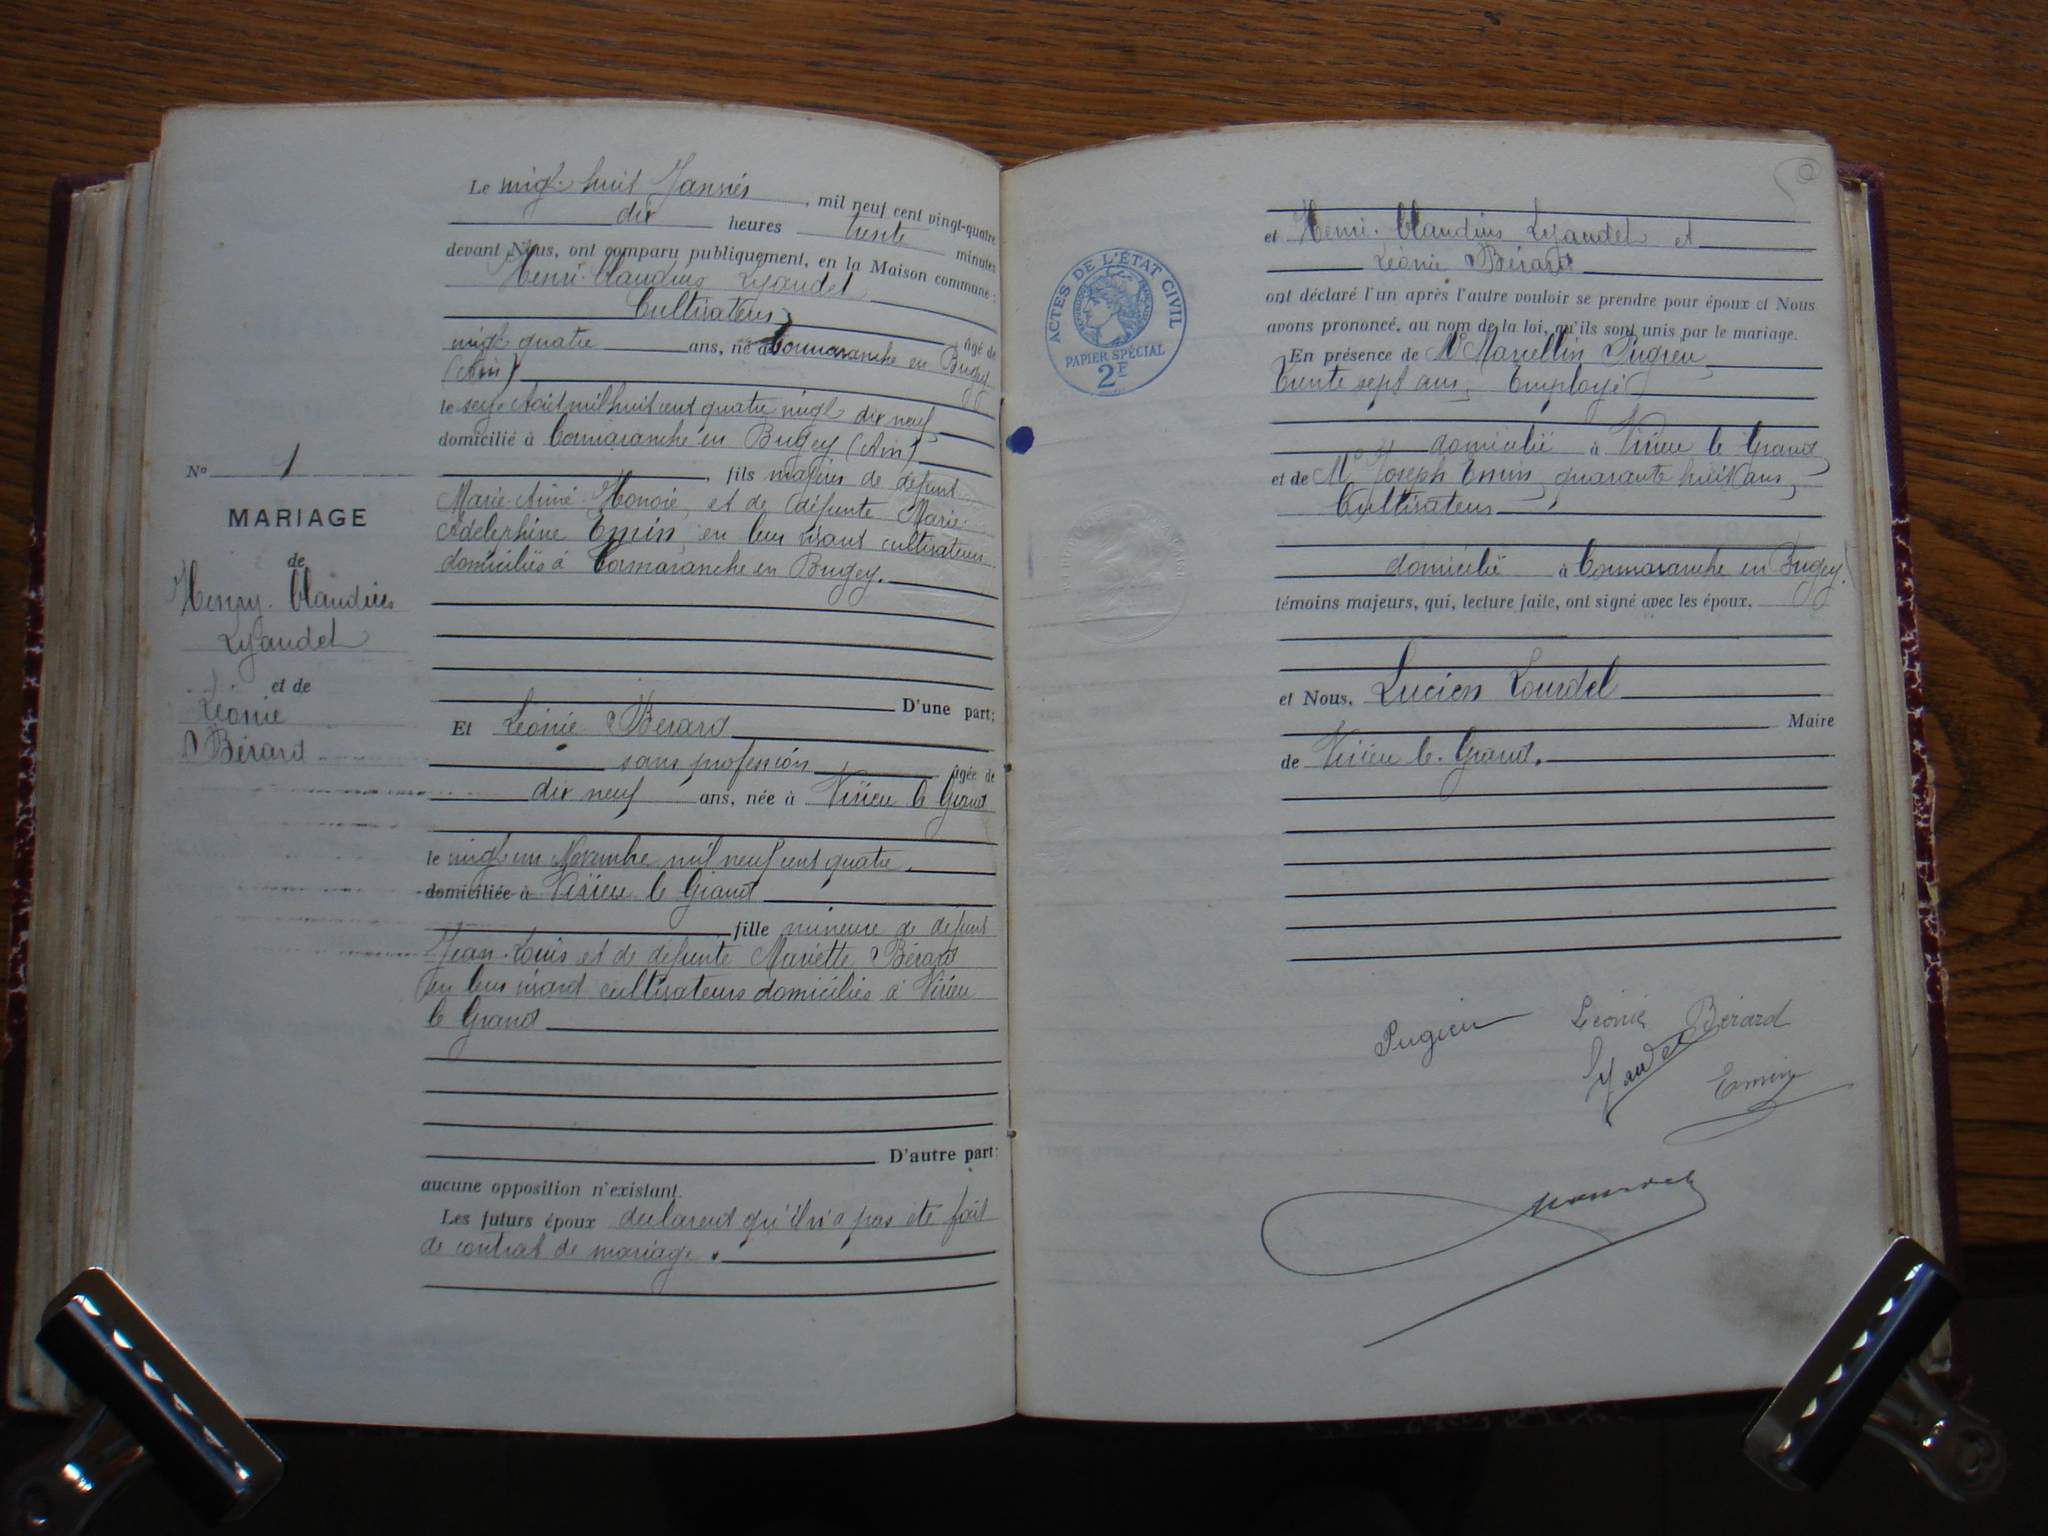 Le vingt huit Janvier, mil neuf cent vingt-quatre
dix heures trente minutes
devant Nous, ont comparu publiquement, en la Maison commune:
Henri-Claudius Lyaudet
Cultivateur, âgé de
vingt quatre ans, né à Cormaranche en Bugey
(Ain)
le seize Août mil huit cent quatre vingt dix neuf
domicilié à Cormaranche en Bugey (Ain)
, fils majeur de défunt
Marie Aimé Honoré, et de défunte Marie
Adelphine Emin, en leur vivant cultivateurs
domiciliés à Cormaranche en Bugey.
D'une part;
Et Léonie Bérard
sans profession âgée de
dix neuf ans, née à Virieu le Grand
le vingt un Novembre mil neuf cent quatre.
domiciliée à Virieu le Grand
fille mineure de défunt
Jean-Louis et de défunte Mariette Bérard
en leur vivant cultivateurs domiciliés à Virieu
le Grand
D'autre part:
aucune opposition n'existant.
Les futurs époux declarent qu'il n'a pas été fait
de contrat de mariage.
N° 1
MARIAGE
de
Henry-Claudius
Lyaudet
et de
Léonie
Bérard
ACTES DE L'ÉTAT CIVIL
PAPIER SPÉCIAL
2F
et Henri-Claudius Lyaudet et
Léonie Bérard
ont déclaré l'un après l'autre vouloir se prendre pour époux et Nous
avons prononcé, au nom de la loi, qu'ils sont unis par le mariage.
En présence de Mr Marcellin Pugieu,
trente sept ans, Employé
domicilié à Virieu le Grand
et de Mr Joseph Emin, quarante huit ans,
Cultivateur
domicilié à Cormaranche en Bugey.
témoins majeurs, qui, lecture faite, ont signé avec les époux.
et Nous, Lucien Lourdel
Maire
de Virieu-le-Grand.
Pugieu Léonie Bérard
Lyaudet
Emin